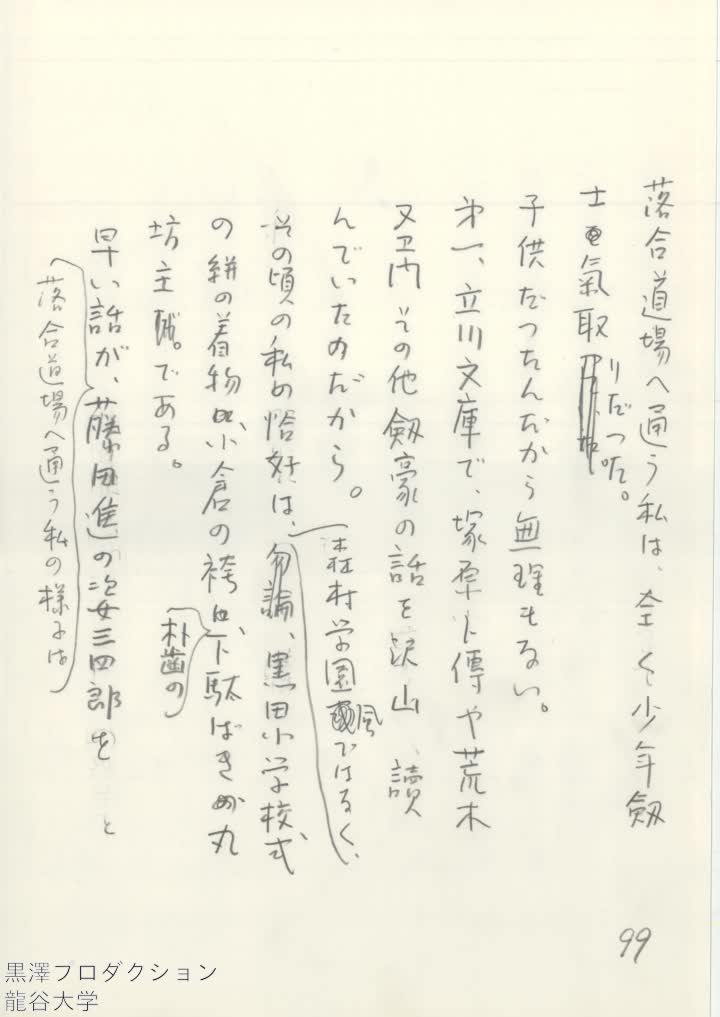 落合道場へ通う私は、全く少年劔
士氣取りだつた。
子供だつたんだから無理もない。
第一、立川文庫で、塚原卜傳や荒木
又ヱ門その他劔豪の話を沢山、讀
んでいたのだから。
森村学園風ではなく、
その頃の私の恰好は、勿論、黒田小学校式
の絣の着物に、小倉の袴に、下駄ばきの丸
朴歯の
坊主である。
早い話が、藤田進の姿三四郎を
落合道場へ通う私の様子は
と
99
黒澤プロダクション
龍谷大学